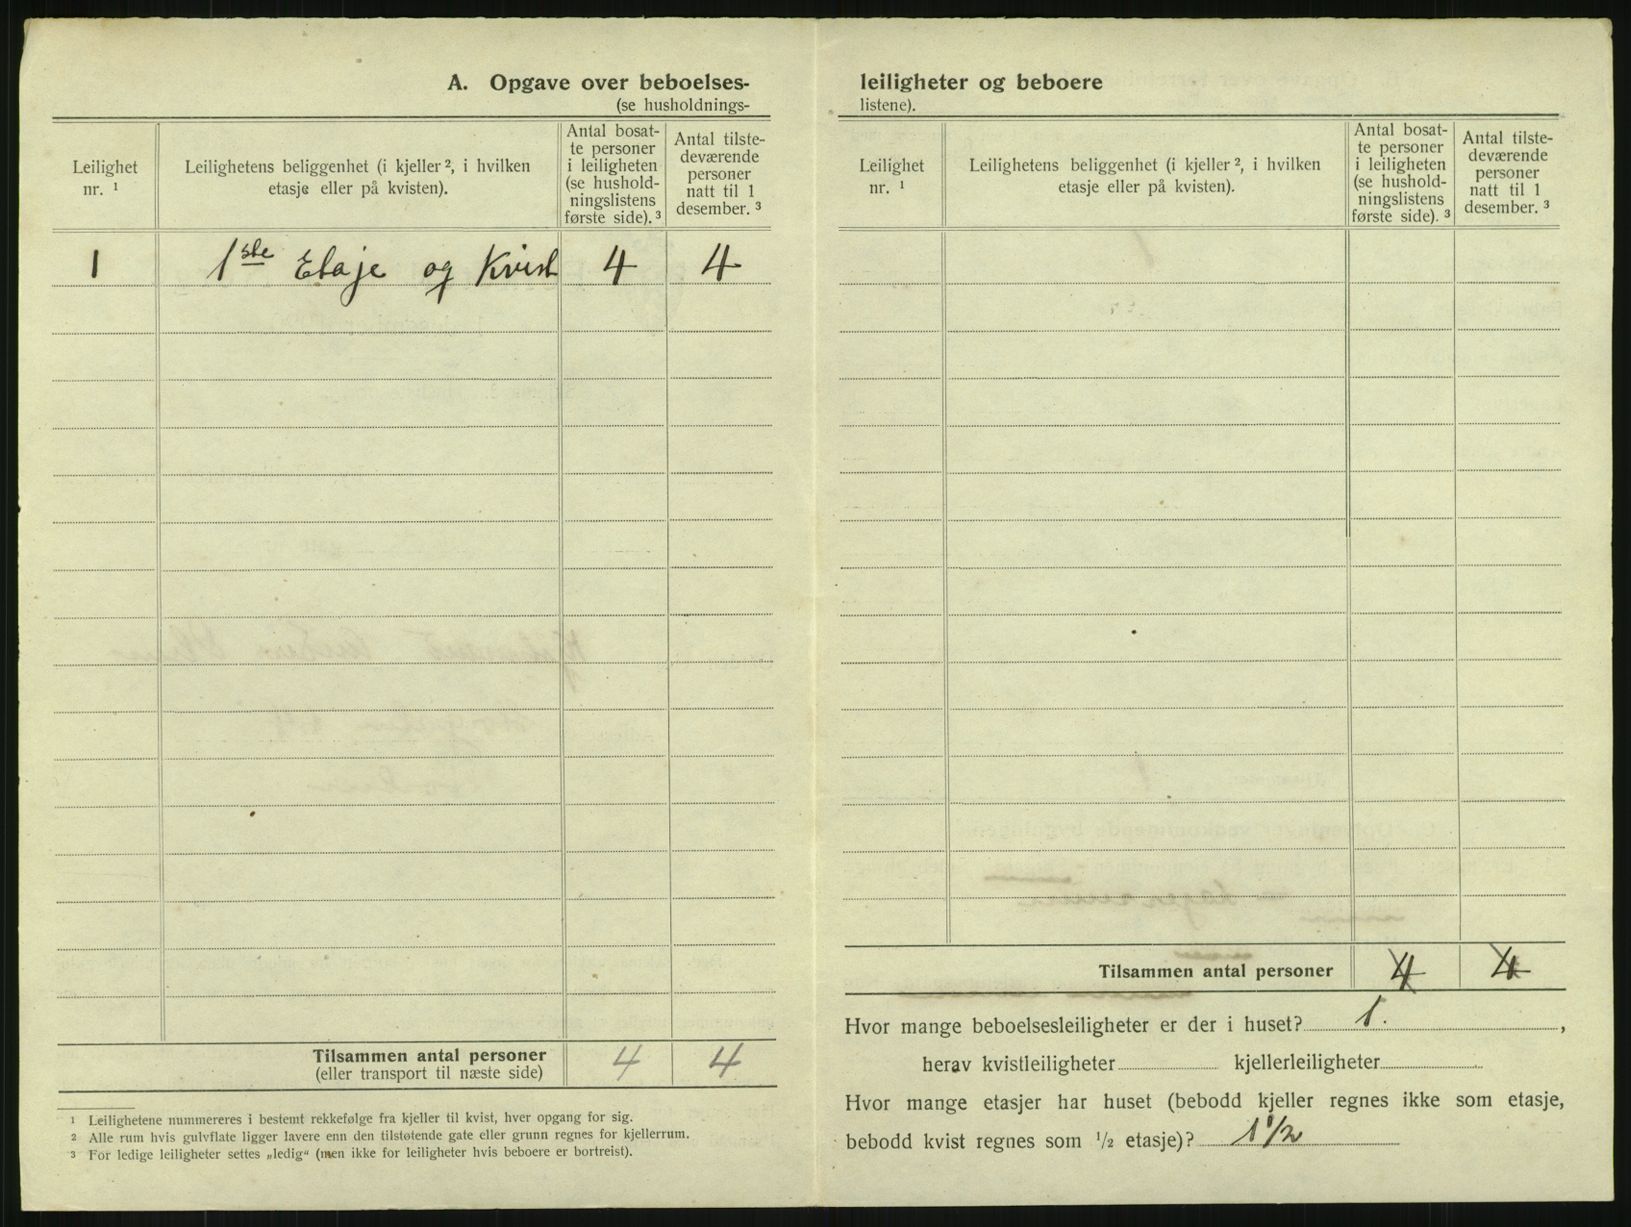 A. Opgave over beboelses-
(se husholdnings-
Leilighet
nr. ¹
Leilighetens beliggenhet (i kjeller ², i hvilken
etasje eller på kvisten).
Antal bosat-
te personer
i leiligheten
(se hushold-
ningslistens
første side). ³
Antal tilste-
deværende
personer
natt til 1
desember. ³
1 1ste Etaje og Kvist 4 4
Tilsammen antal personer 4 4
(eller transport til næste side)
¹ Leilighetene nummereres i bestemt rekkefølge fra kjeller til kvist, hver opgang for sig.
² Alle rum hvis gulvflate ligger lavere enn den tilstøtende gate eller grunn regnes for kjellerrum.
³ For ledige leiligheter settes „ledig“ (men ikke for leiligheter hvis beboere er bortreist).
leiligheter og beboere
listene).
Leilighet
nr. ¹
Leilighetens beliggenhet (i kjeller ², i hvilken
etasje eller på kvisten).
Antal bosat-
te personer
i leiligheten
(se hushold-
ningslistens
første side). ³
Antal tilste-
deværende
personer
natt til 1
desember. ³
Tilsammen antal personer 4 4
Hvor mange beboelsesleiligheter er der i huset? 1. ,
herav kvistleiligheter kjellerleiligheter
Hvor mange etasjer har huset (bebodd kjeller regnes ikke som etasje,
bebodd kvist regnes som ½ etasje)? 1 1/2